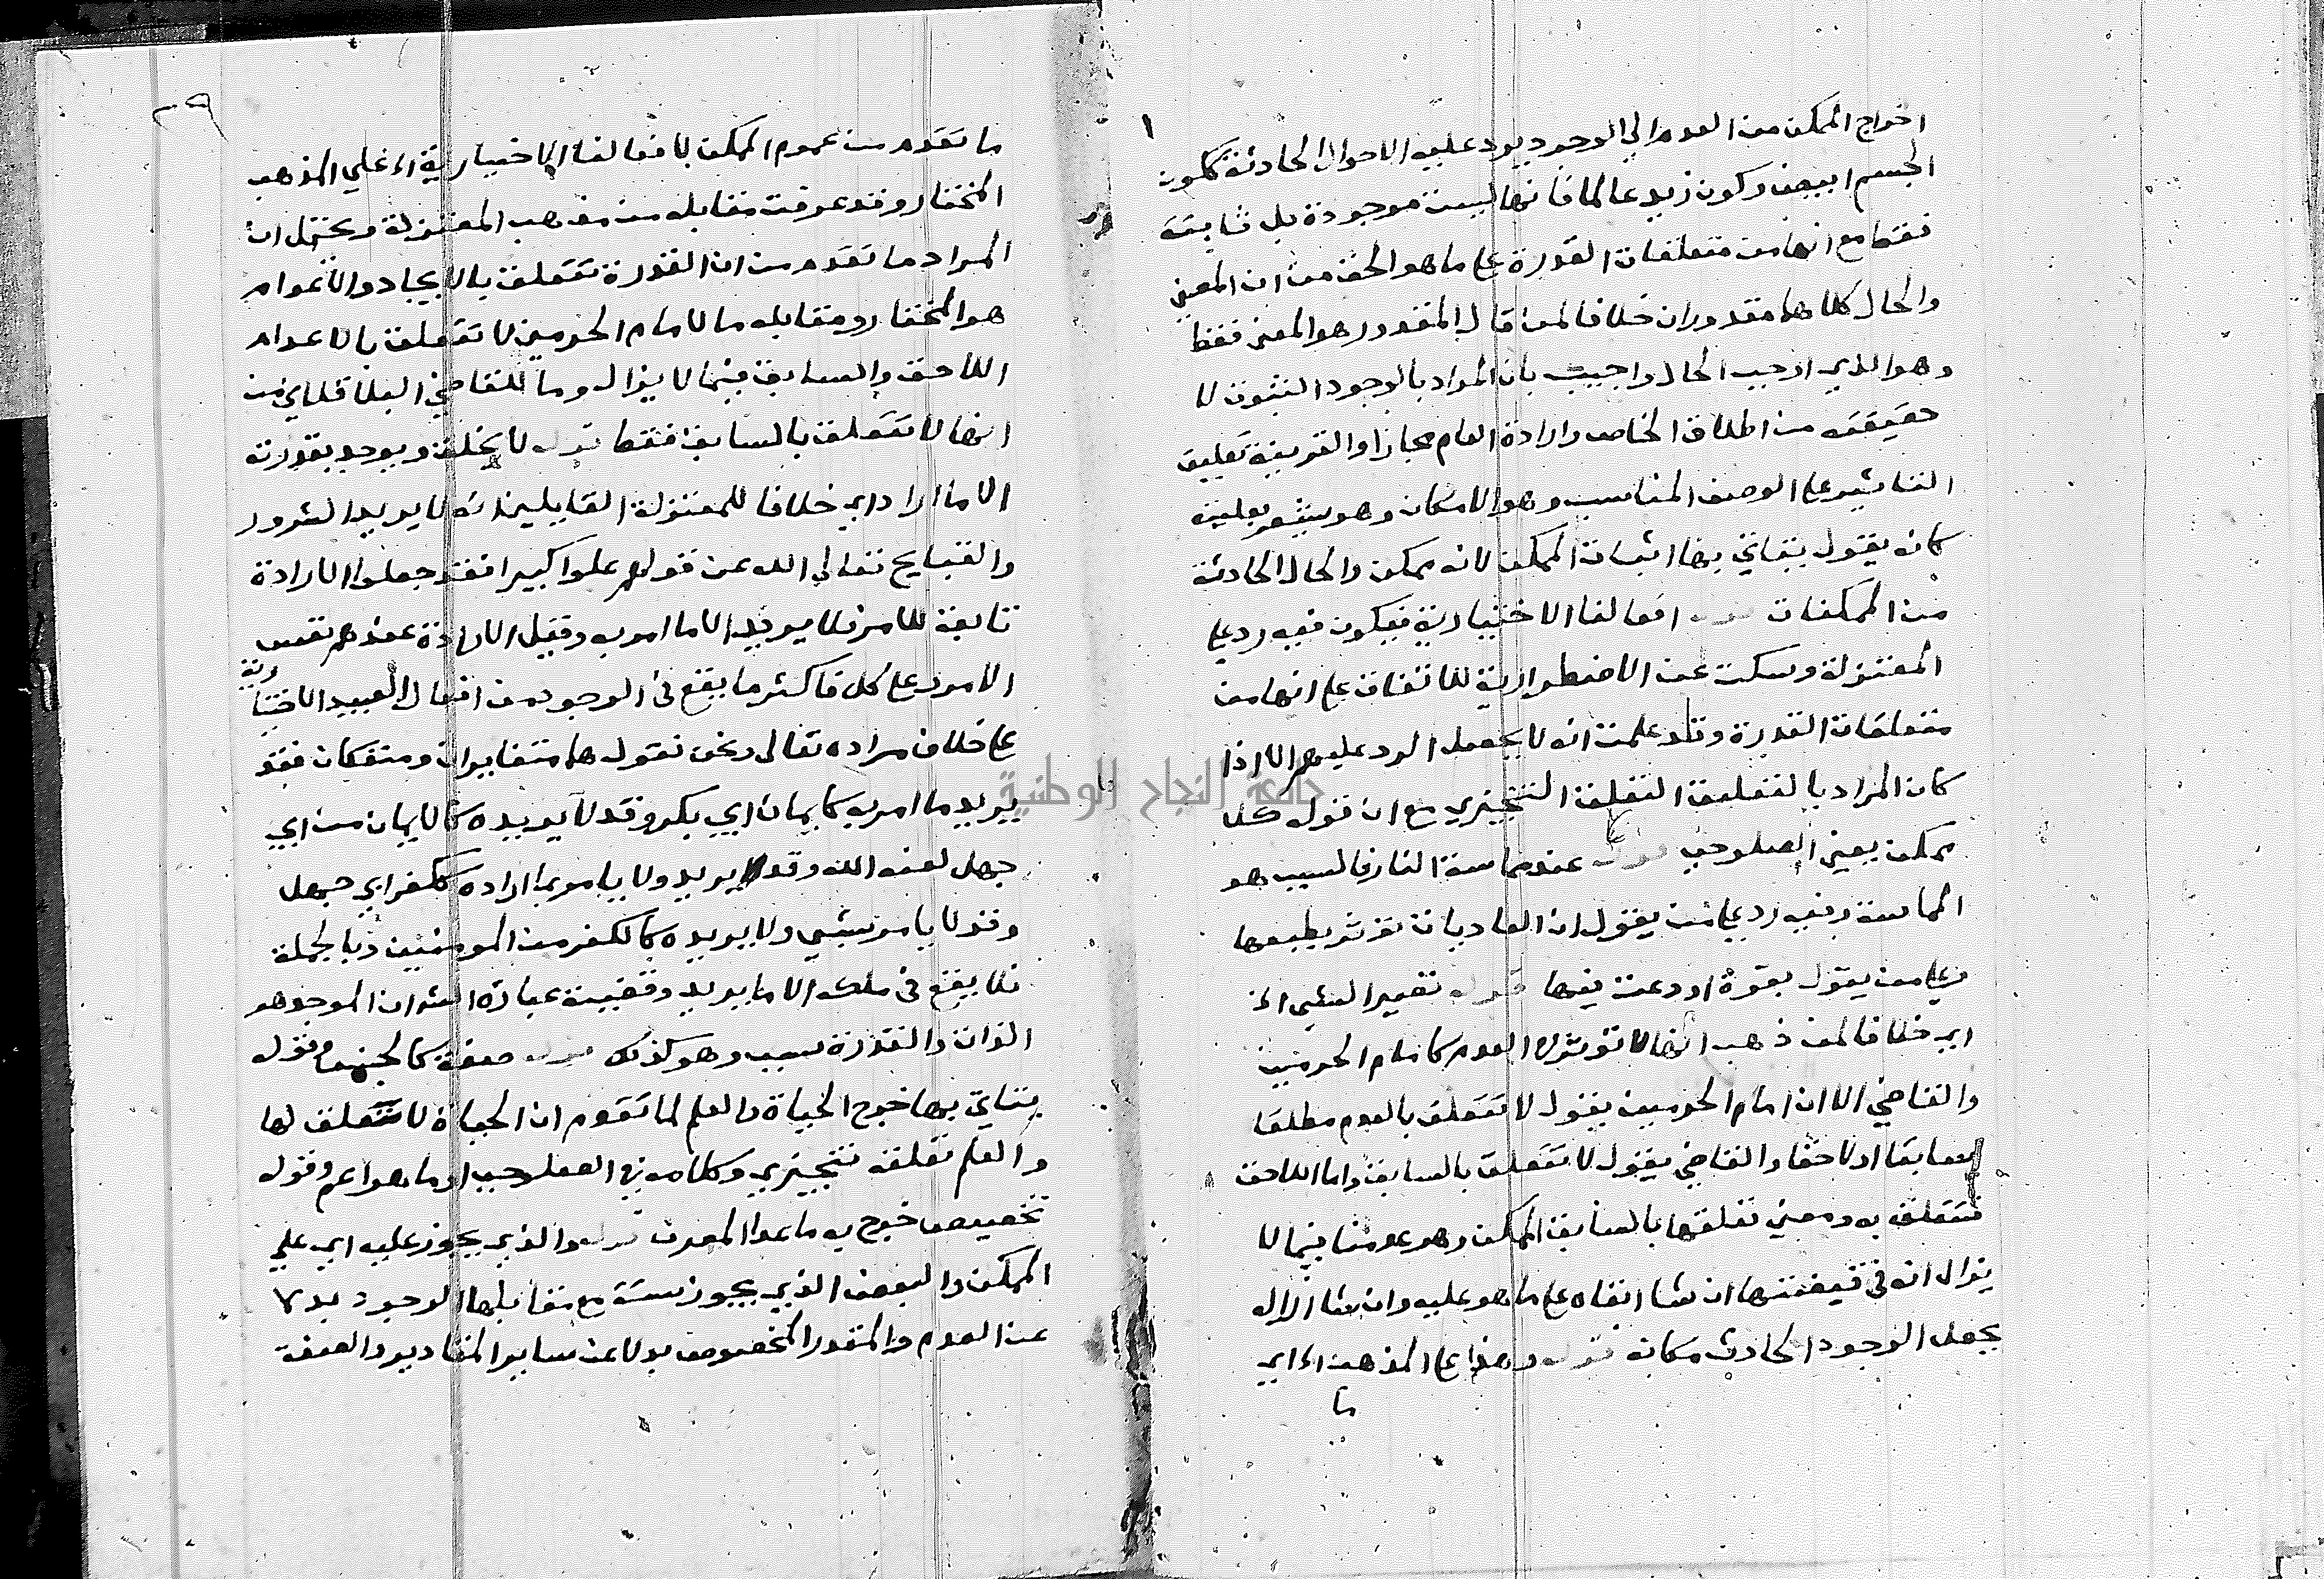 اخراج الممكن من العدم الي الوجود يرد عليه الاحوال الحادثة ككون
الجسم ابيض وكون زيد عالما فانها ليست موجودة بل ثابتة
فقط مع انها من متعلقات القدرة على ما هو الحق من ان المعني
والحال كلاهما مقدوران خلافا لمن قال المقدور هو المعني فقط
وهو الذي اوجب الحال واجيب بان المراد بالوجود الثبوت لا
حقيقته من اطلاق الخاص وارادة العام مجازا والقرينة تعليق
التاثير على الوصف المناسب وهو الامكان وهو يشعر بعليته
كانه يقول يتاتي بها اثبات الممكن لانه ممكن والحال الحادثة
من الممكنات قوله افعالنا الاختيارية فيكون فيه رد على
المعتزلة وسكت عن الاضطرارية للاتفاق على انها من
متعلقات القدرة وقد علمت انه لا يحصل الرد عليهم الا اذا
كان المراد بالتعليق التعلق التنجيزي مع ان قوله كلا
ممكن يعني الصلوحي قوله عند مماسة النار فالسبب هو
المماسة وفيه رد على من يقول ان العاديات تؤثر بطبعها
وعلى من يقول بقوة اودعت فيها قوله تصير الشي الخ
اي خلافا لمن ذهب انها لا تؤثر في العدم كامام الحرمين
والقاضي الا ان امام الحرمين يقول لا تتعلق بالعدم مطلقا
سابقا او لاحقا والقاضي يقول لا تتعلق بالسابق واما اللاحق
فتتعلق به ومعني تعلقها بالسابق الممكن وهو عدمنا فيما لا
يزال انه في قبضتها ان شا ابقاه على ما هو عليه وان شا ازاله
بجعل الوجود الحادث مكانه قوله وهذا على المذهب اه اي
ما
٢٩
ما تقدم من عموم الممكن لافعالنا الاختيارية اه علي المذهب
المختار وقد عرفت مقابله من مذهب المعتزلة ويحتمل ان
المراد ما تقدم من ان القدرة تتعلق بالايجاد والاعدام
هو المختار ومقابله ما لامام الحرمين لا تتعلق بالاعدام
اللاحق والسابق فيما لا يزال وما للقاضي الباقلاني من
انها لا تتعلق بالسابق فقط قوله لا يخلق ويوجد بقدرته
الا ما اراد اي خلافا للمعتزلة القايلين انه لا يريد الشرور
والقبايح تعالي الله عن قولهم علوا كبيرا فقد جعلوا الارادة
تابعة للامر فلا يريد الا ما امر به وقيل الارادة عندهم نفس
الامر وعلى كل فاكثر ما يقع في الوجود من افعال العبيد الاختيا
رية
على خلاف مراده تعالى ونحن نقول هما متغايران ومنفكان فقد
يريد ما امر به كايمان ابي بكر وقد لا يريده كالايمان من ابي
جهل لعنه الله وقد يريد ولا يامر بما اراده ككفر ابي جهل
وقد لا يامر بشي ولا يريده كالكفر من المومنين وبالجملة
فلا يقع في ملكه الا ما يريد وقضية عبارة الش ان الموجد هو
الذات والقدرة سبب وهو كذلك قوله صفة كالجنس وقوله
يتاتي بها خرج الحياة والعلم لما تقدم ان الحياة لا تتعلق لها
والعلم تعلقه تنجيزي وكلامه في الصلوحي او ما هو اعم وقوله
تخصيص خرج به ما عدا المعرف قوله والذي يجوز عليه اي علي
الممكن والبعض الذي يجوز ستة مع مقابلها الوجود بدلا
عن العدم والمقدر المخصوص بدلا عن ساير المقادير والصفة